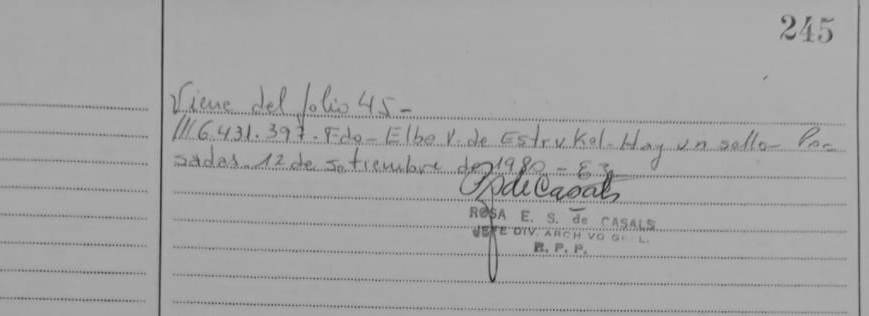 245
Viene del folio 45-
///6.431.397. Fdo- Elba V. de Estrukel. Hay un sello- Po-
sadas. 12 de setiembre de 1980 -
ROSA E. S. de CASALS
JEFE DIV. ARCHIVO GRAL.
R. P. P.